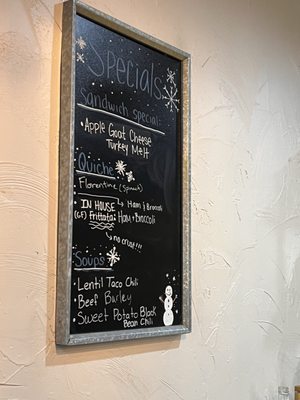 Specials
Sandwich special:
• Apple Goat Cheese
Turkey Melt
Quiche
• Florentine (Spinach)
↳ Ham & Broccoli
• IN HOUSE
(GF) Frittata: Ham + Broccoli
↳ no crust!!!
Soups
• Lentil Taco Chili
• Beef Barley
• Sweet Potato Black
Bean Chili